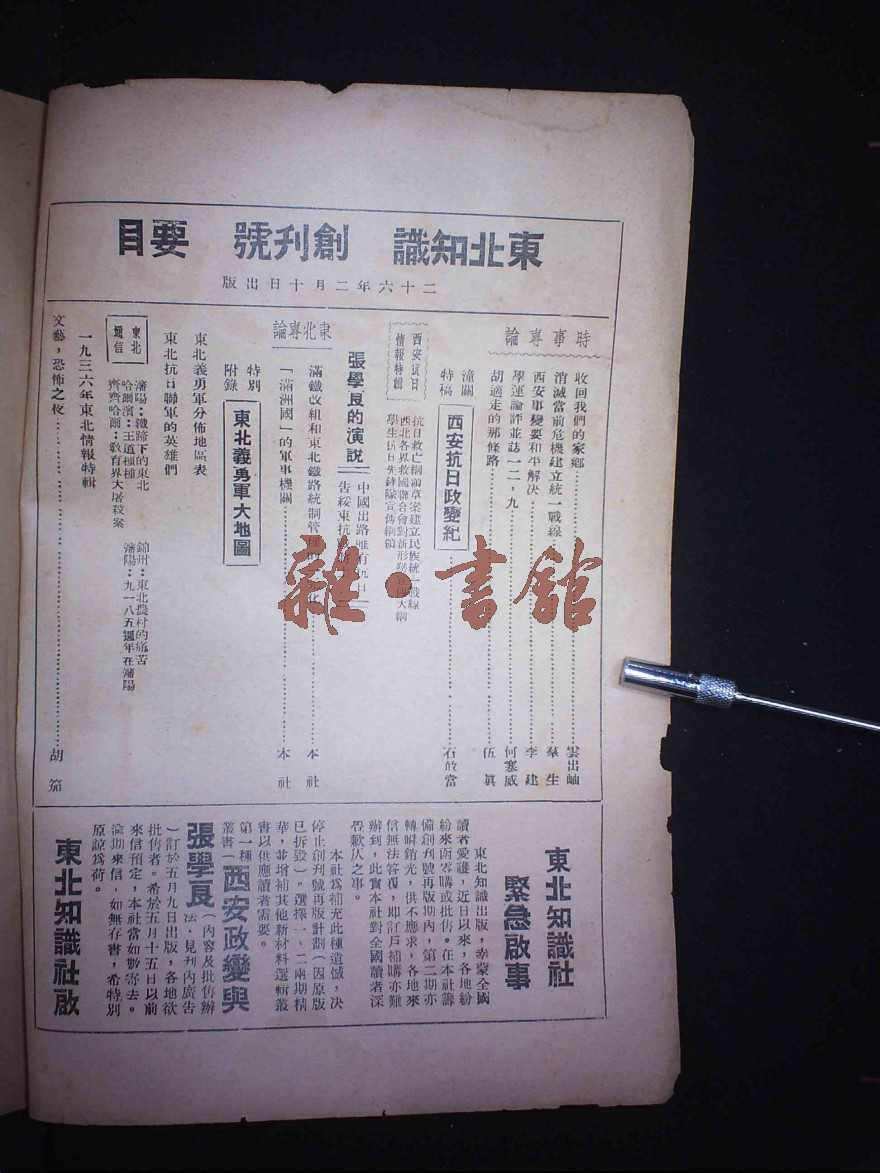 東北知識 創刊號 要目
二十六年二月十日出版
時事專論
收回我們的家鄉……雲出岫
消滅當前危機建立統一戰線……羣生
西安事變要和平解決……李建
學運論評並誌一二，九……何寒威
胡適走的那條路……伍眞
潼關特稿
西安抗日政變紀……石敢當
西安抗日情報特輯
抗日救亡綱領草案建立民族統一戰線
西北各界救國聯合會對新形勢宣傳大綱
學生抗日先鋒隊宣傳綱領
張學良的演說
中國出路唯有抗日
告綏東抗戰
東北專論
滿鐵改組和東北鐵路統制管理……本社
「滿洲國」的軍事機關……本社
特別附錄
東北義勇軍大地圖
東北義勇軍分佈地區表
東北抗日聯軍的英雄們
東北通信
瀋陽：鐵蹄下的東北
哈爾濱：王道種種
齊齊哈爾：敎育界大屠殺案
錦州：東北農村的痛苦
瀋陽：九一八五週年在瀋陽
一九三六年東北情報特輯
文藝，恐怖之夜……胡笳
東北知識社
緊急啟事
東北知識出版，幸蒙全國
讀者愛護，近日以來，各地紛
紛來函零購或批售。在本社籌
備創刊號再版期內，第二期亦
轉瞬銷光，供不應求，各地來
信無法答覆，即訂戶補購亦難
辦到，此實本社對全國讀者深
爲歉仄之事。
本社爲補充此種遺憾，决
停止創刊號再版計劃（因原版
已拆毀）。選擇一、二兩期精
華，並增補其他新材料選輯叢
書以供應讀者需要。
第一種叢書（西安政變與
張學良（內容及批售辦法，見刊內廣告
）訂於五月九日出版，各地欲
批售者。希於五月十五日以前
來信預定，本社當如數寄去。
逾期來信，如無存書，希特別
原諒爲荷。
東北知識社啟
雜·書館